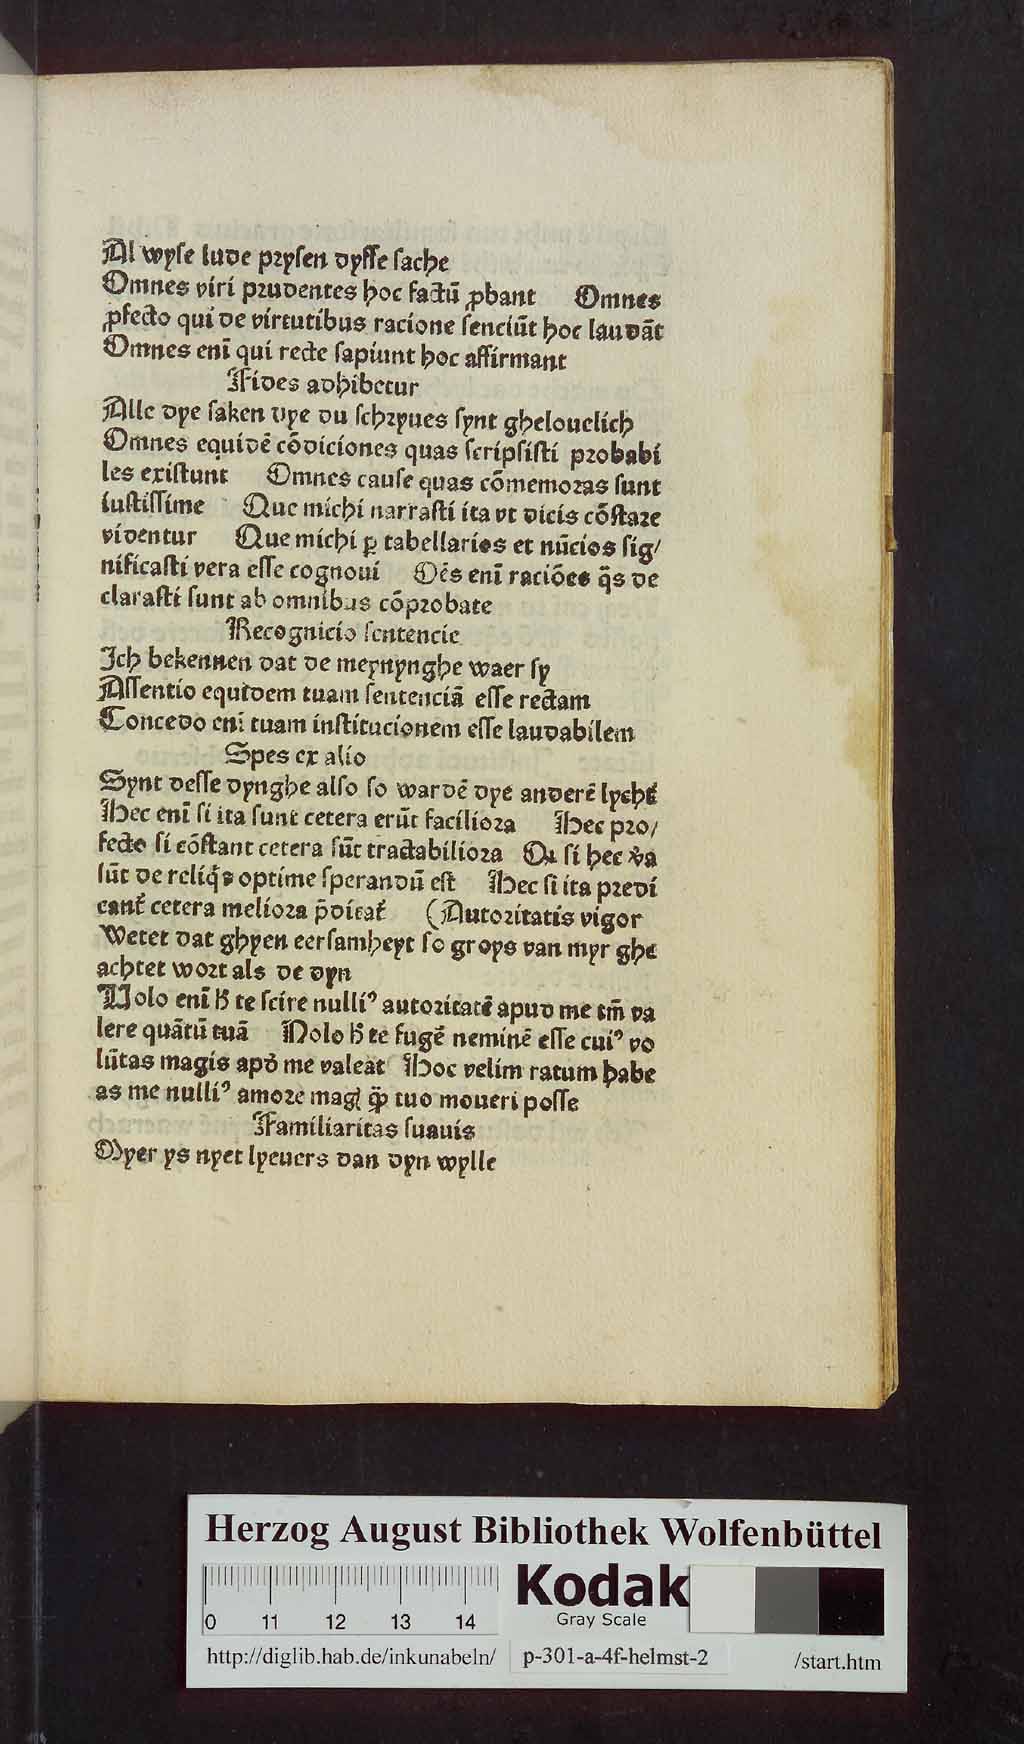 Al wyse lude prysen dysse sache
Omnes viri prudentes hoc factū ꝓbant Omnes
ꝓfecto qui de virtutibus racione senciūt hoc laudāt
Omnes enī qui recte sapiunt hoc affirmant
Fides adhibetur
Alle dye saken dye du schryues synt ghelouelich
Omnes equidē cōdiciones quas scripsisti probabi
les existunt Omnes cause quas cōmemoras sunt
iustissime Que michi narrasti ita vt dicis cōstare
videntur Que michi ꝑ tabellarios et nūcios sig/
nificasti vera esse cognoui Oēs enī raciōes q̄s de
clarasti sunt ab omnibus cōprobate
Recognicio sentencie
Ich bekennen dat de meynynghe waer sy
Assentio equidem tuam sentenciā esse rectam
Concedo enī tuam institucionem esse laudabilem
Spes ex alio
Synt desse dynghe also so wardē dye anderē lychť
Hec enī si ita sunt cetera erūt faciliora Hec pro/
fecto si cōstant cetera sūt tractabiliora Qꝛ si hec v̓a
sūt de reliq̓s optime sperandū est Hec si ita predi
canť cetera meliora p̄dicať (Autoritatis vigor
Wetet dat ghyen eersamheyt so groys van myr ghe
achtet wort als de dyn
Nolo enī ħ te scire nulliꝰ autoritatē apud me tm̄ va
lere quātū tuā Nolo ħ te fugē neminē esse cuiꝰ vo
lūtas magis apd̓ me valeat Hoc velim ratum habe
as me nulliꝰ amore magꝭ q̄ꝫ tuo moueri posse
Familiaritas suauis
Myer ys nyet lyeuers dan dyn wylle
Herzog August Bibliothek Wolfenbüttel
0 11 12 13 14
Kodak
Gray Scale
http://diglib.hab.de/inkunabeln/ p-301-a-4f-helmst-2 /start.htm